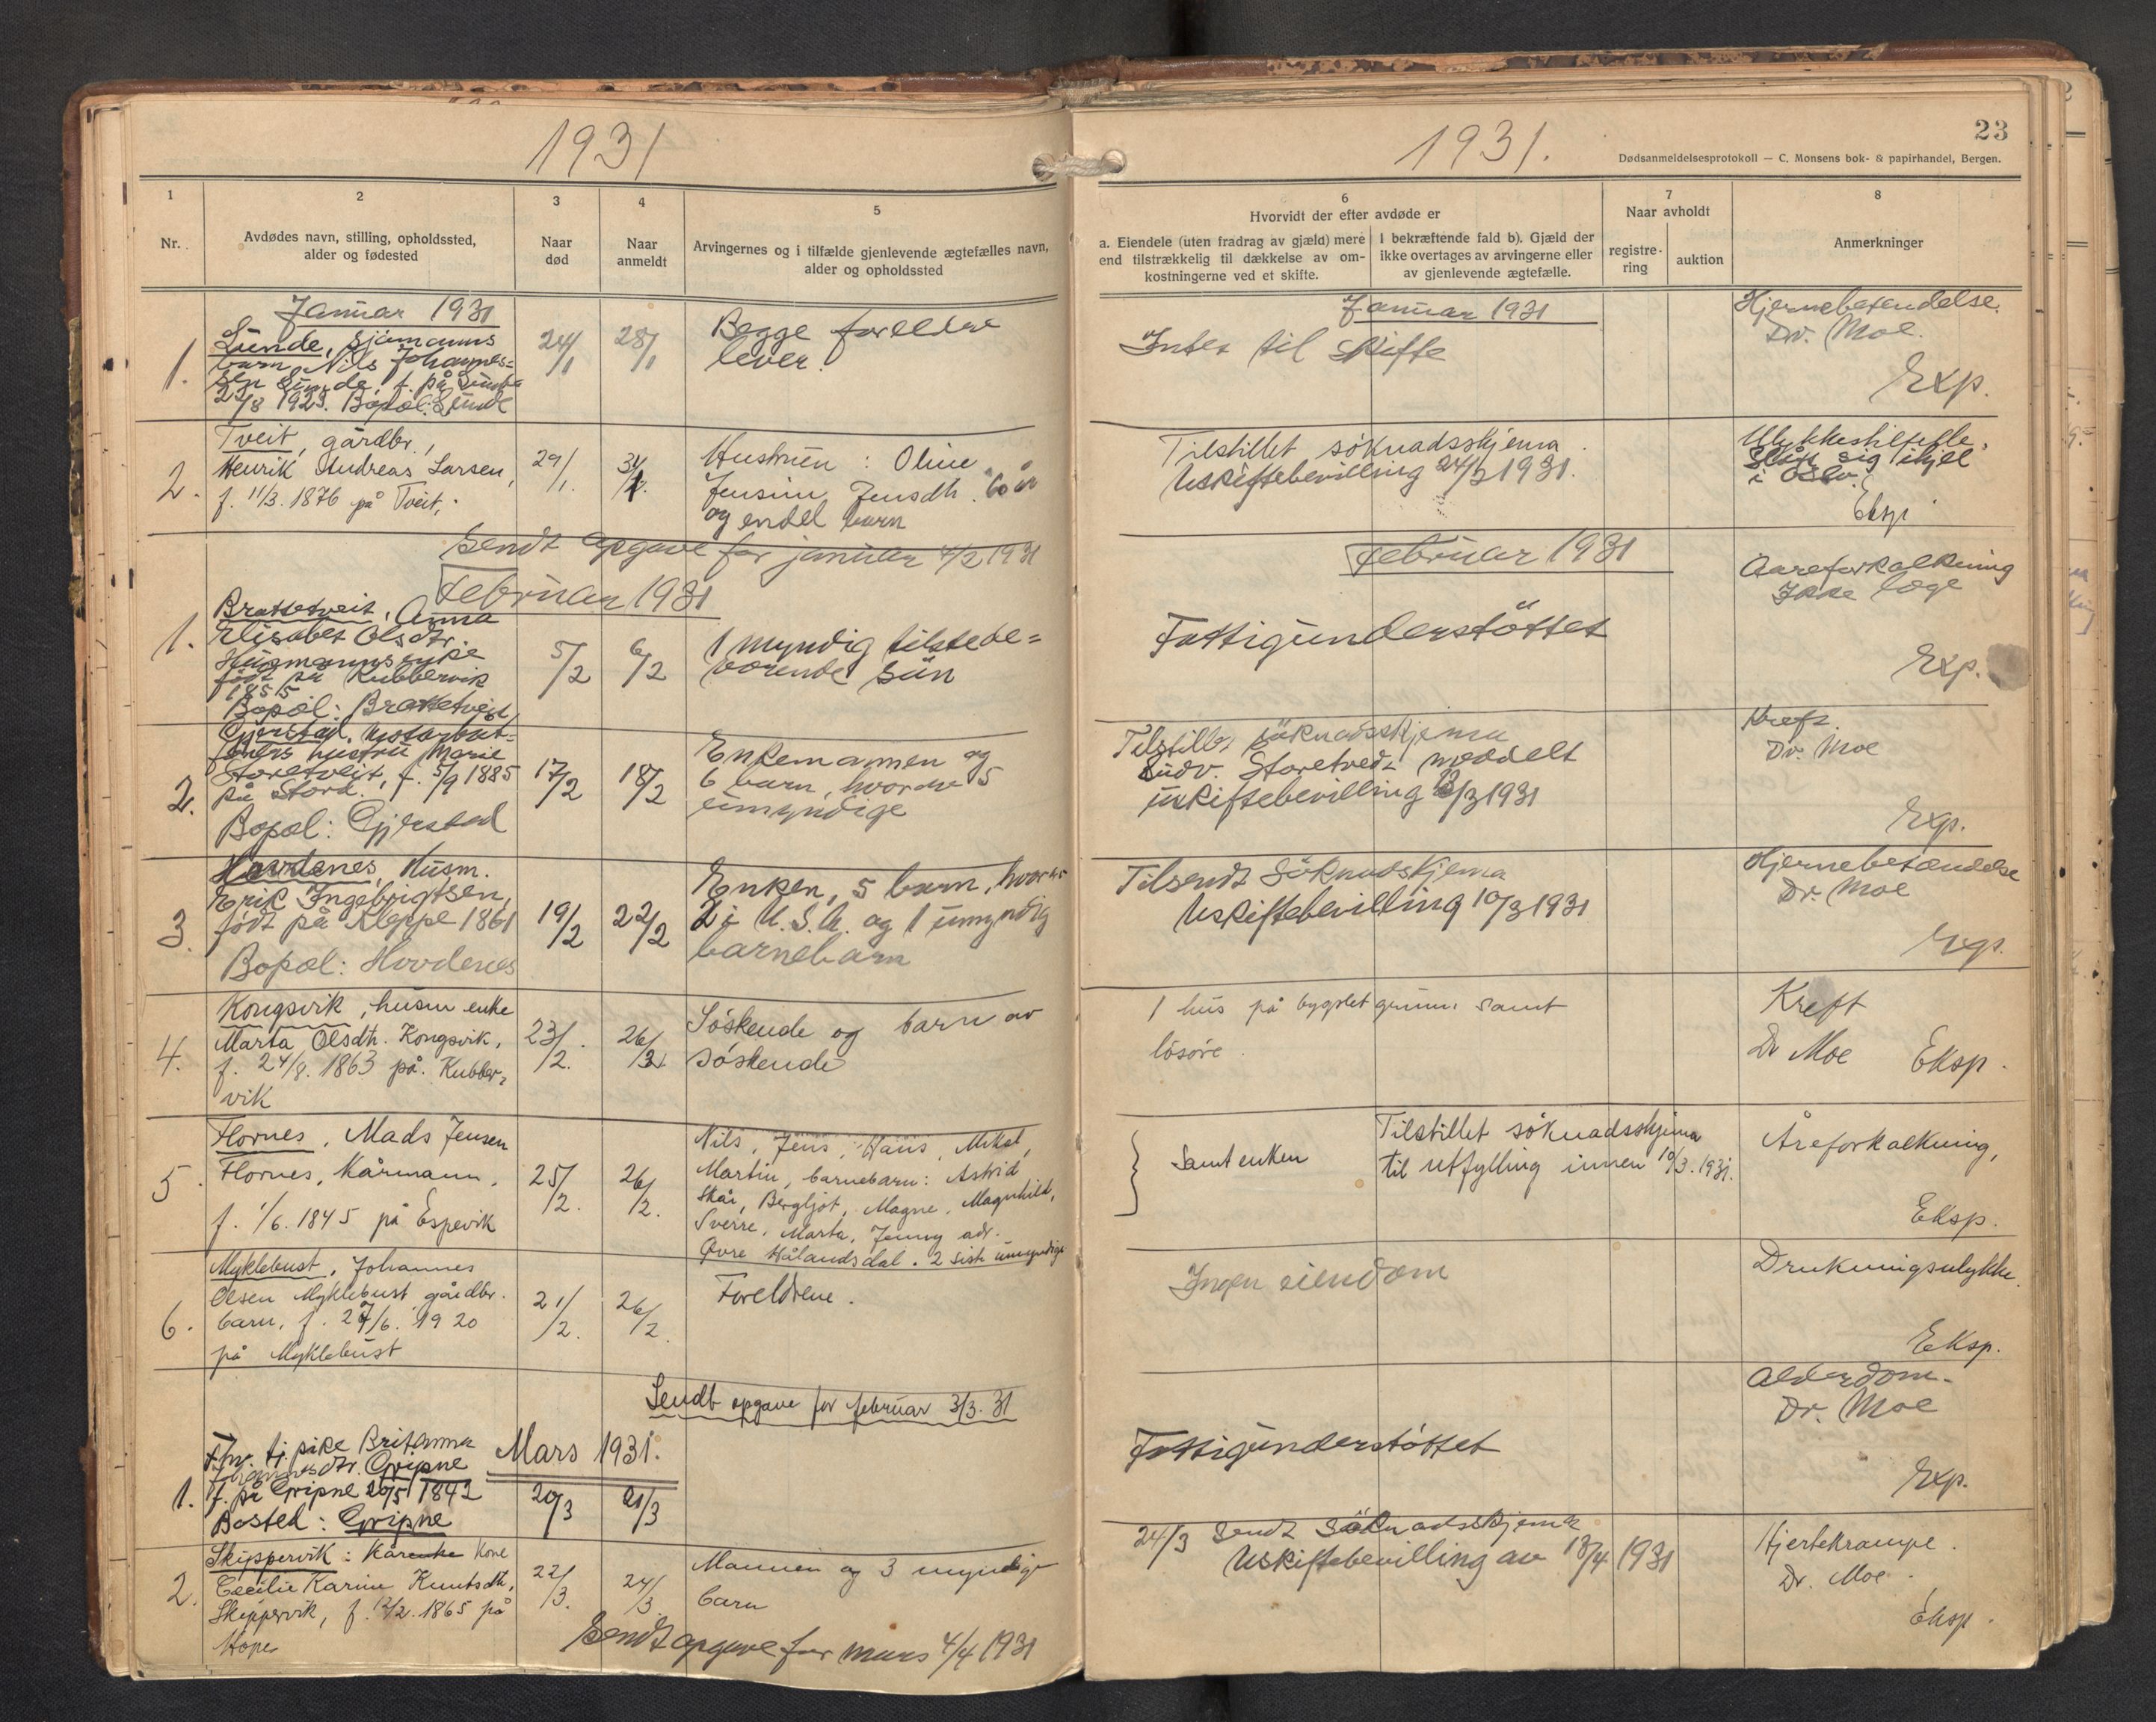 1931
1
2
3
4
5
Nr.
Avdødes navn, stilling, opholdssted,
alder og fødested
Naar
død
Naar
anmeldt
Arvingernes og i tilfælde gjenlevende ægtefælles navn,
alder og opholdssted
Januar 1931
1.
Lunde, Sjømanns
barn Nils Johannes=
sen Lunde, f. på Lunde
/8 1923. Bopæl: Lunde
24/1
28/1
Begge foreldre
lever.
2.
Tveit, gårdbr.,
Henrik Andreas Larsen,
f. 11/3. 1876 på Tveit.
29/1.
31/1.
Hustruen: Oline
Jensine Jensdtr. 60 år
og endel barn
Sendt opgave for januar 4/2 1931
Februar 1931
1.
Brattetveit, Anna
Elisabet Olsdtr.
Husmannsenke
født på Kubbervik
1855
Bopæl: Brattetveit
5/2
6/2
1 myndig tilstede=
værende sün
2.
Gjerstad,
hustru Marie
Storetveit, f. 5/9 1885
på Stord.
Bopæl: Gjerstad
17/2
18/2
Enkemannen og
6 barn, hvorav 5
umyndige
3.
Hovdenes, Husm.
Erik Ingebrigtsen,
født på Kleppe 1861
Bopæl: Hovdenes
19/2
22/2
Enken, 5 barn, hvorav
2 i U.S.A. og 1 umyndig
barnebarn
4.
Kongsvik, husm enke
Marta Olsdtr. Kongsvik,
f. 24/8. 1863 på Kubber=
vik
23/2.
26/2.
Søskende og barn av
søskende
5.
Flornes, Mads Jensen
Flornes, Kårmann,
f. 1/6. 1845 på Espevik
25/2.
26/2.
Nils, Jens, Hans, Mikal,
Martin, barnebarn: Astrid
Skår, Bergljot, Magne, Magnhild,
Sverre, Marta, Jenny adr.
Øvre Hålandsdal. 2 siste umyndige
6.
Myklebust, Johannes
Olsen Myklebust gårdbr.
barn, f. 27/6. 1920
på Myklebust
21/2.
26/2.
Foreldrene.
Sendt opgave for februar 3/3. 31
Mars 1931.
1.
Fhv. tj. pike Britanna
Johannesdtr. Gripne
f. på Gripne 20/5 1842
Bosted: Gripne
20/3
21/3
2.
Skippervik: Kårenke Kone
Cecilie Karine Knutsdtr,
Skippervik, f. 12/2. 1865 på
Hope
22/3.
24/3
Mannen og 3 myndige
barn
Sendt opgave for mars 4/4 1931
1931.
23
Dødsanmeldelsesprotokoll — C. Monsens bok- & papirhandel, Bergen.
6
Hvorvidt der efter avdøde er
a. Eiendele (uten fradrag av gjæld) mere
end tilstrækkelig til dækkelse av om-
kostningerne ved et skifte.
I bekræftende fald b). Gjæld der
ikke overtages av arvingerne eller
av gjenlevende ægtefælle.
7
Naar avholdt
registre-
ring
auktion
8
Anmerkninger
Januar 1931
Intet til skifte
Hjernebetendelse.
Dr. Moe.
Exp.
Tilstillet søknadsskjema.
Uskiftebevilling 24/2 1931.
Ulykkestilfelle.
Slått sig ihjel
i Oslo.
Eksp
Februar 1931
Fattigunderstöttet
Aareforkalkning
Ikke læge
Exp.
Tilstillet söknadsskjema
Ludv. Storetvedt meddelt
uskiftebevilling /3 1931
Kreft.
Dr. Moe
Exp.
Tilsendt Söknadsskjema
Uskiftebevilling 10/3 1931
Hjernebetændelse
Dr. Moe
Exp.
1 hus på bygslet grunn samt
løsøre.
Kreft
Dr Moe Eksp.
Samt enken
Tilstillet søknadsskjema
til utfylling innen 10/3. 1931.
Åreforkalkning,
Eksp.
Ingen eiendom
Drukningsulykke.
Eksp.
Fattigunderstöttet
Alderdom.
Dr. Moe
Exp.
24/3 Sendt Söknadsskjema
Uskiftebevilling av 18/4 1931
Hjertekrampe.
Dr. Moe.
Eksp.